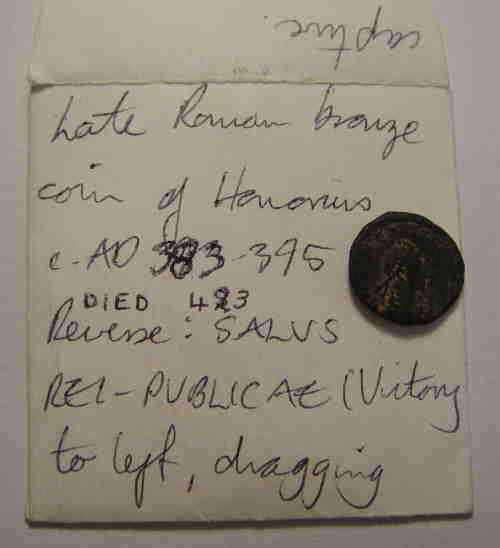 captive.
Late Roman bronze
coin of Honorius
c. AD 383-395
DIED 423
Reverse: SALVS
REI-PUBLICAE (Victory
to left, dragging